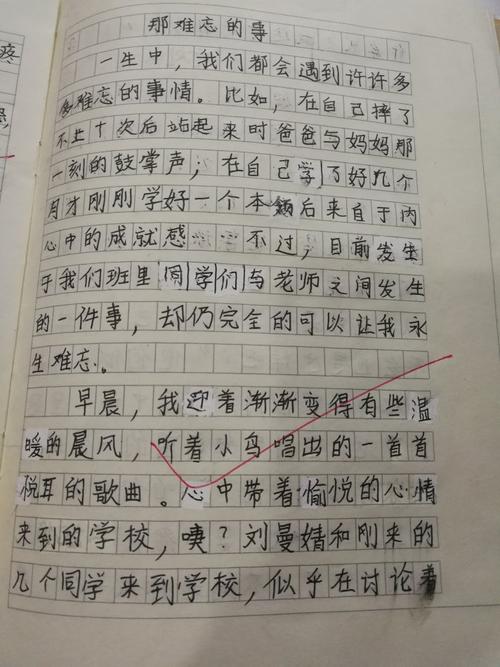 那难忘的事
一生中，我们都会遇到许许多
多难忘的事情。比如，在自己摔了
不止十次后站起来时爸爸与妈妈那
一刻的鼓掌声；在自己学了好几个
月才刚刚学好一个本领后来自于内
心中的成就感 不过，目前发生
于我们班里同学们与老师之间发生
的一件事，却仍完全的可以让我永
生难忘。
早晨，我迎着渐渐变得有些温
暖的晨风，听着小鸟唱出的一首首
悦耳的歌曲。心中带着愉悦的心情
来到的学校，咦？刘曼婧和刚来的
几个同学来到学校，似乎在讨论着
疼